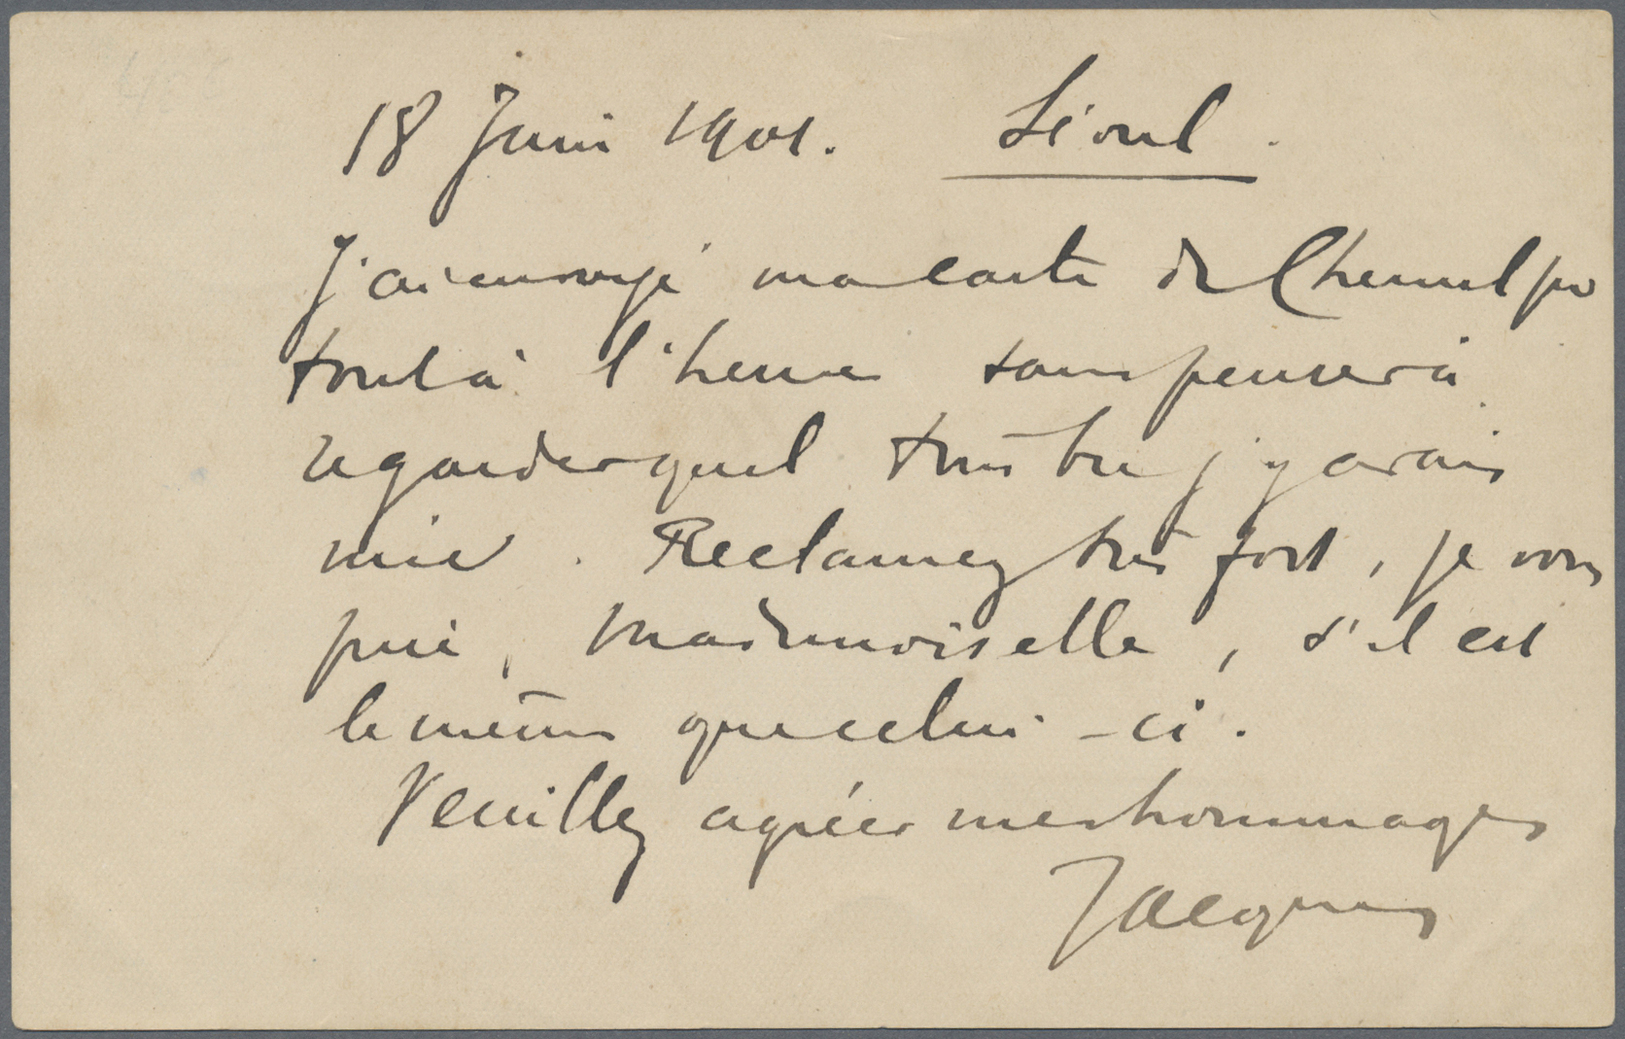 18 Juin 1901. Séoul.
J'ai envoyé ma carte de Chemulpo
tout à l'heure sans penser à
regarder quel timbre j'y avais
mis. Reclamez très fort, je vous
prie, Mademoiselle, s'il est
le même que celui-ci.
Veuillez agréer mes hommages
Jacques